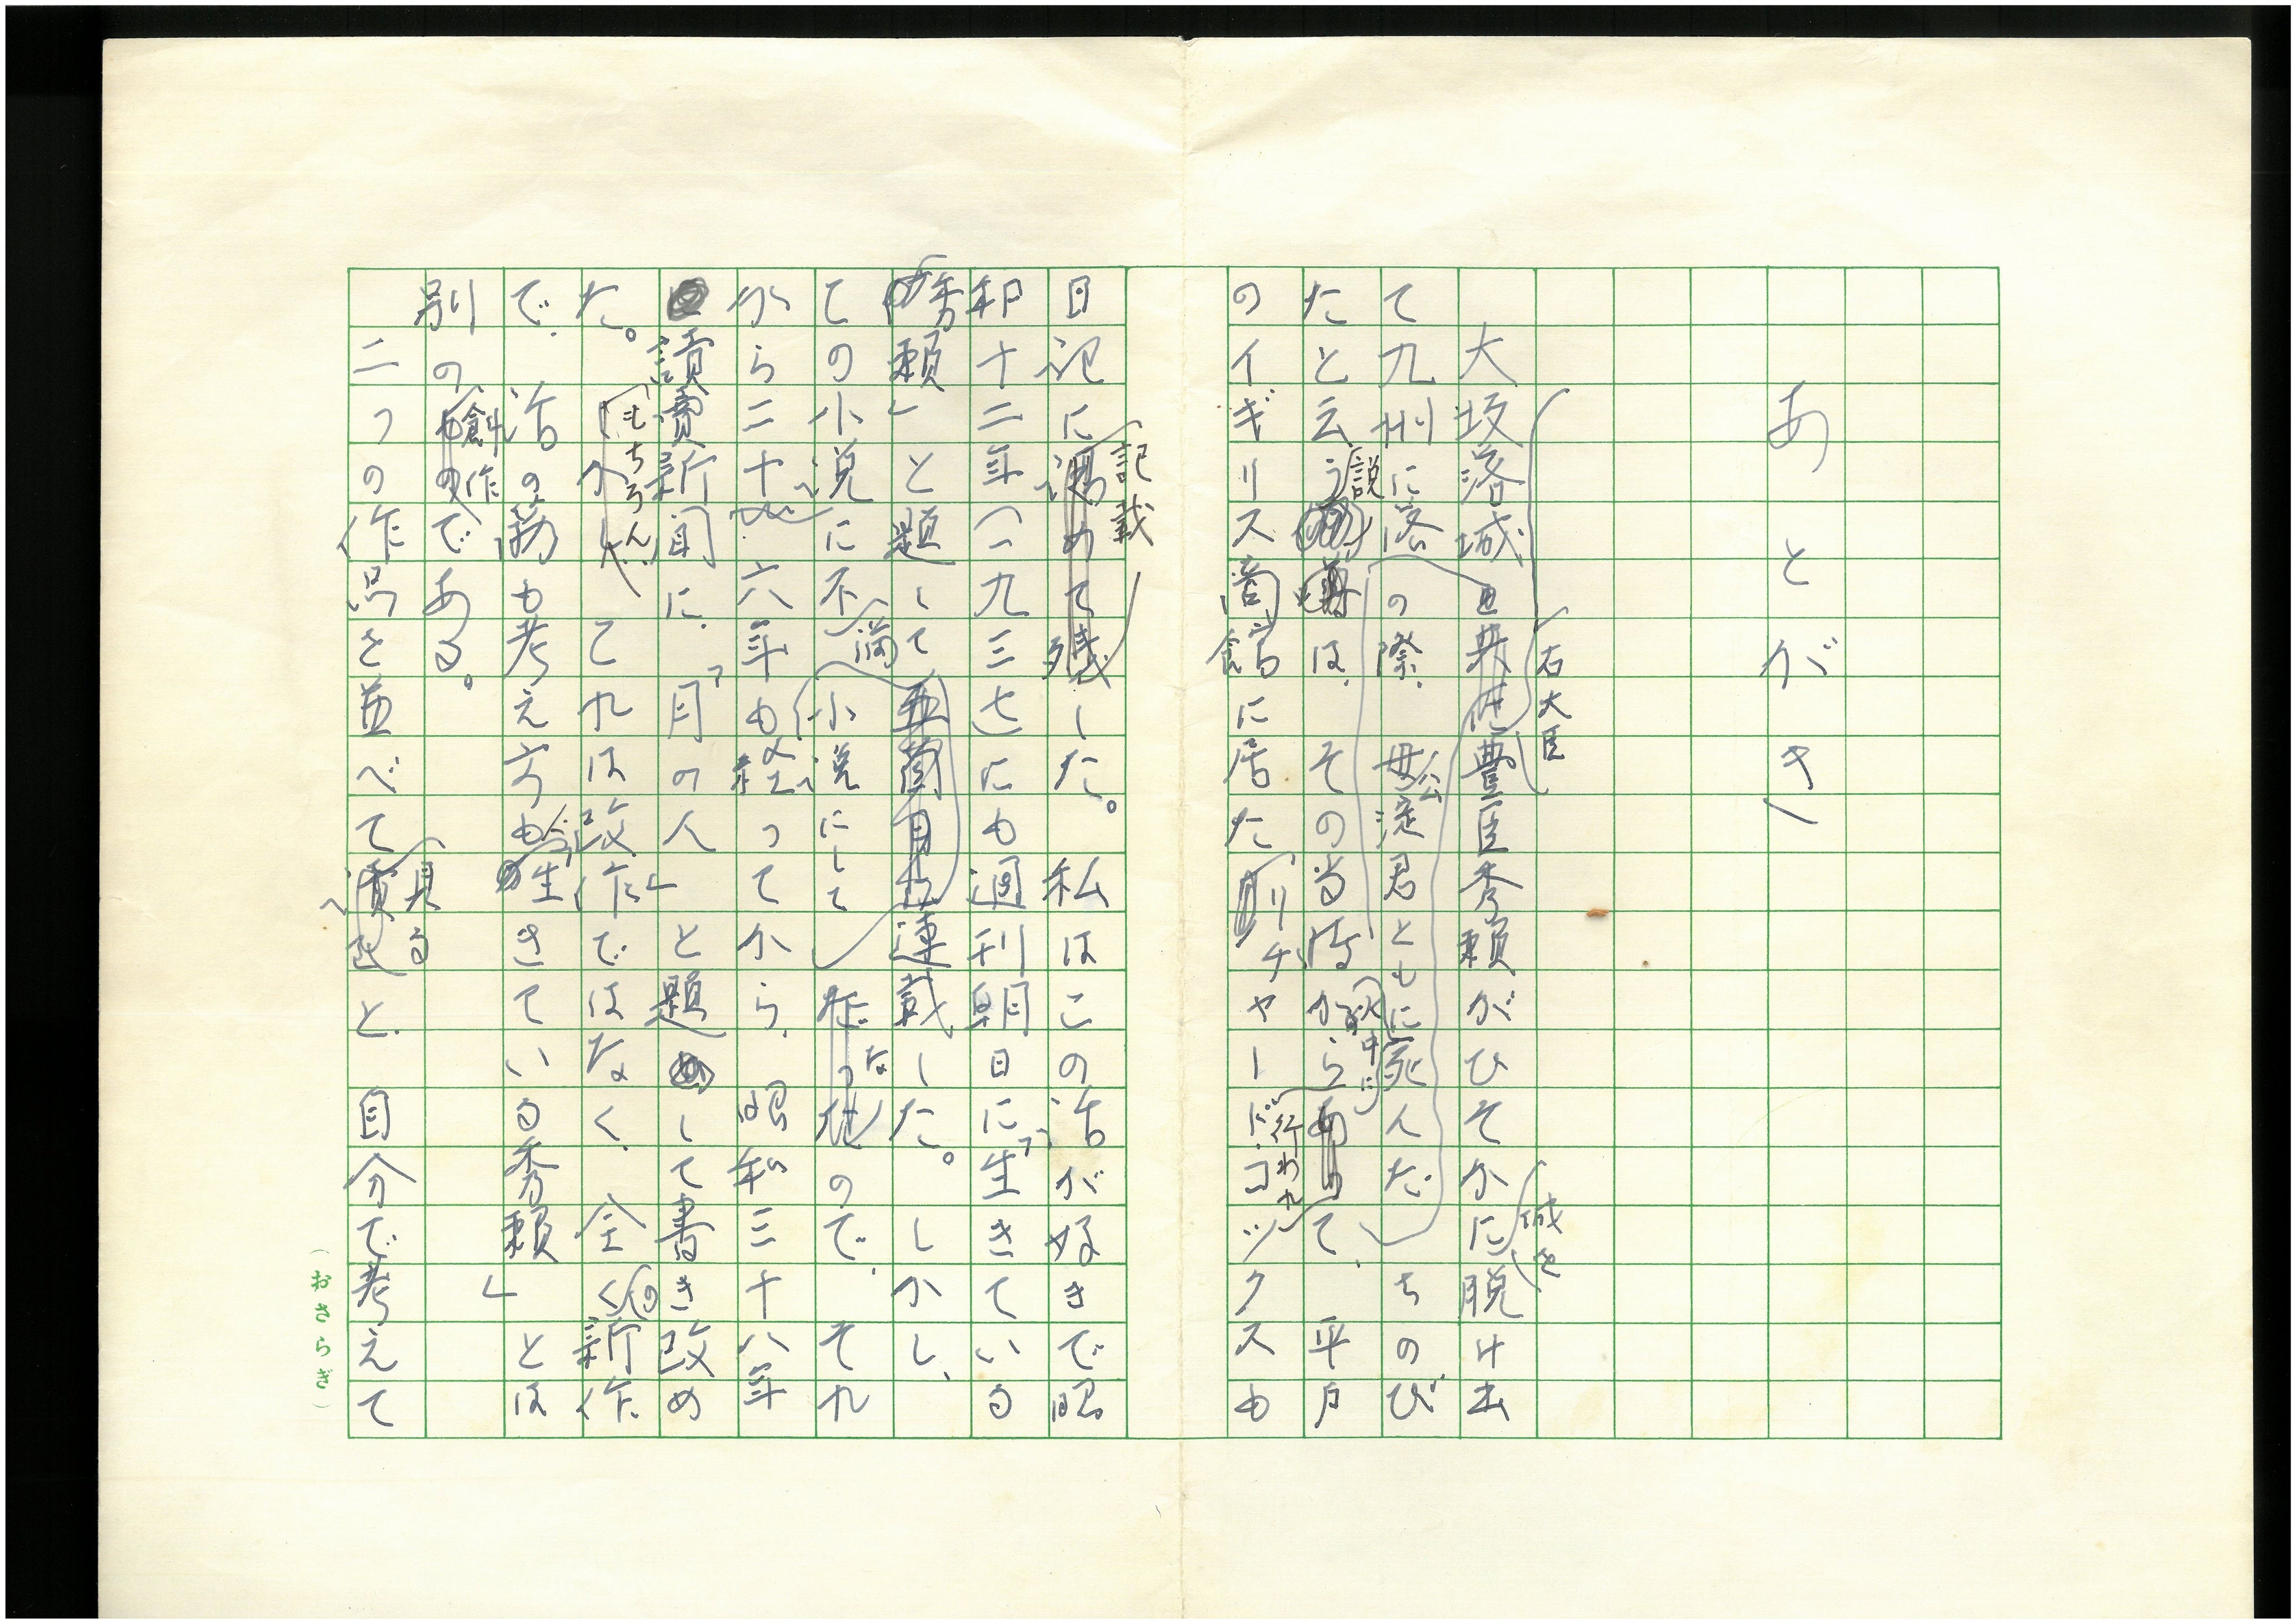 あとがき
大坂落城
右大臣
豊臣秀頼がひそかに
城を
脱け出
て九州に落
の際、母
公
淀君ともに死んだ
ちのび
たと云う
説
は、その当時から
行われ
て、平戸
のイギリス商館に居たリチャードコックスも
日記に
記載
した。私はこの話が好きで昭
和十二年(一九三七)にも週刊朝日に「生きている
秀頼」と題して
連載した。しかし、
ての小説に不
満
小説にして
な
ので、それ
から二十六年も経ってから、昭和三十八年
讀賣新聞に、「月の人」と題して書き改め
た。
もちろん、
これは改作ではなく、全く
の
新作
で、話の筋も考え方も「生きている秀頼」とは
別の
創作
である。
二つの作品を並べて
見る
と、自分で考えて
(おさらぎ)